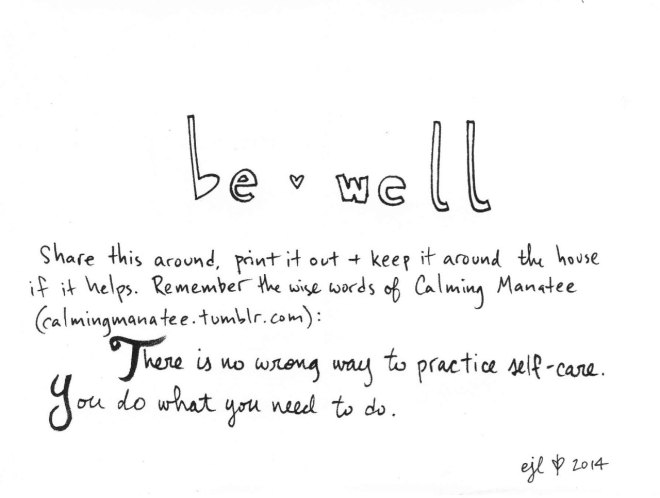 be ♡ well
Share this around, print it out + keep it around the house
if it helps. Remember the wise words of Calming Manatee
(calmingmanatee.tumblr.com):
There is no wrong way to practice self-care.
You do what you need to do.
ejl ♡ 2014